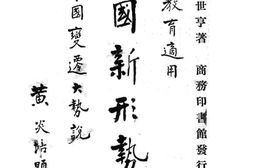 世亨著　商務印書館發行
教育適用
國新形勢
國變遷大勢說
黃炎培題